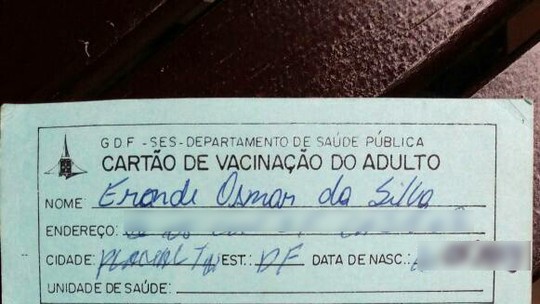 G D F - SES - DEPARTAMENTO DE SAÚDE PÚBLICA
CARTÃO DE VACINAÇÃO DO ADULTO
NOME Eronde Osmar da Silva
ENDEREÇO:
CIDADE: EST.: DF DATA DE NASC.:
UNIDADE DE SAÚDE: